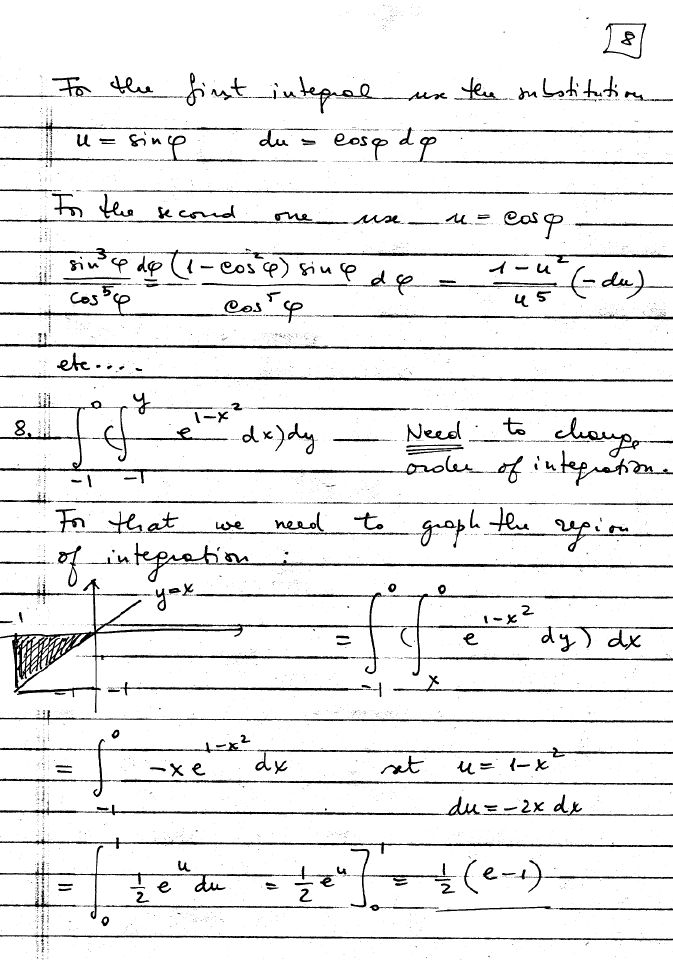 8
For the first integral use the substitution
u = sinφ du = cosφ dφ
For the second one use u = cosφ
sin³φ/cos⁵φ dφ = (1 - cos²φ) sinφ/cos⁵φ dφ = (1-u²)/u⁵ (-du)
etc....
8. ∫_{-1}^{0} (∫_{-1}^{y} e^{1-x²} dx) dy Need to change
order of integration.
For that we need to graph the region
of integration :
y=x
-1
-1 -1
= ∫_{-1}^{0} (∫_{x}^{0} e^{1-x²} dy) dx
= ∫_{-1}^{0} -x e^{1-x²} dx set u = 1-x²
du = -2x dx
= ∫_{0}^{1} 1/2 e^u du = 1/2 e^u ]_{0}^{1} = 1/2 (e-1)